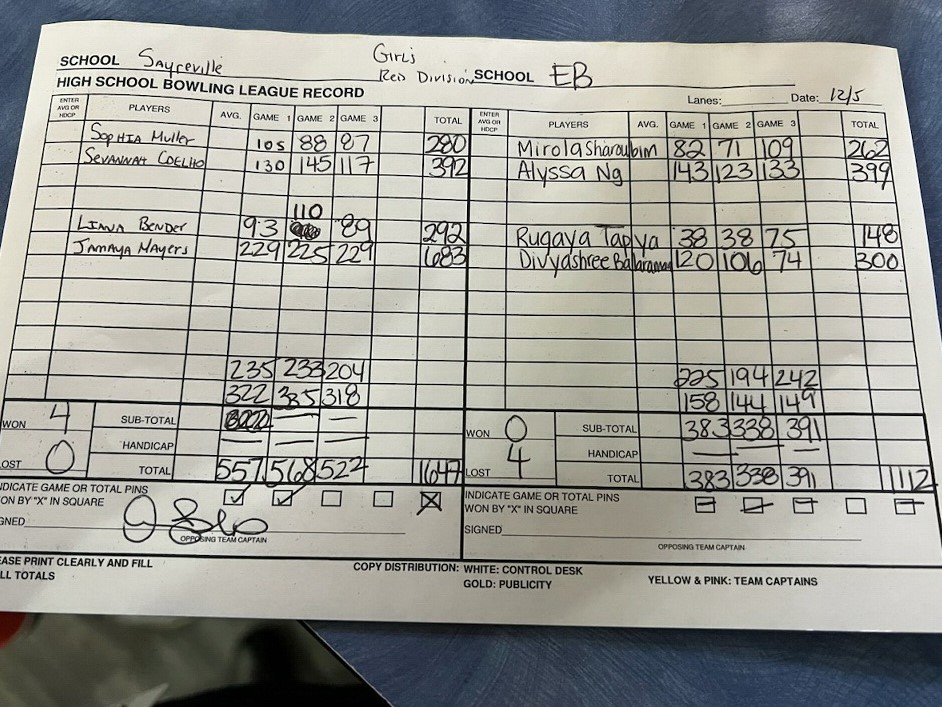 SCHOOL Sayreville Girls Red Division SCHOOL EB
HIGH SCHOOL BOWLING LEAGUE RECORD Lanes: Date: 12/5
ENTER AVG OR HDCP PLAYERS AVG. GAME 1 GAME 2 GAME 3 TOTAL ENTER AVG OR HDCP PLAYERS AVG. GAME 1 GAME 2 GAME 3 TOTAL
Sophia Muller 105 88 87 280 Mirolasharoubim 82 71 109 262
Sevannah Coelho 130 145 117 392 Alyssa Ng 143 123 133 399
110
Liana Bender 93 89 292 Rugaya Tapya 38 38 75 148
Jamaya Mayers 229 225 229 683 Divyashree Balaraman 120 106 74 300
235 233 204 225 194 242
322 335 318 158 144 149
WON 4 SUB-TOTAL — — WON 0 SUB-TOTAL 383 338 391
HANDICAP — — — HANDICAP — —
LOST 0 TOTAL 557 568 522 1647 LOST 4 TOTAL 383 338 391 1112
INDICATE GAME OR TOTAL PINS INDICATE GAME OR TOTAL PINS
ON BY "X" IN SQUARE WON BY "X" IN SQUARE
GNED SIGNED
OPPOSING TEAM CAPTAIN OPPOSING TEAM CAPTAIN
EASE PRINT CLEARLY AND FILL COPY DISTRIBUTION: WHITE: CONTROL DESK YELLOW & PINK: TEAM CAPTAINS
LL TOTALS GOLD: PUBLICITY